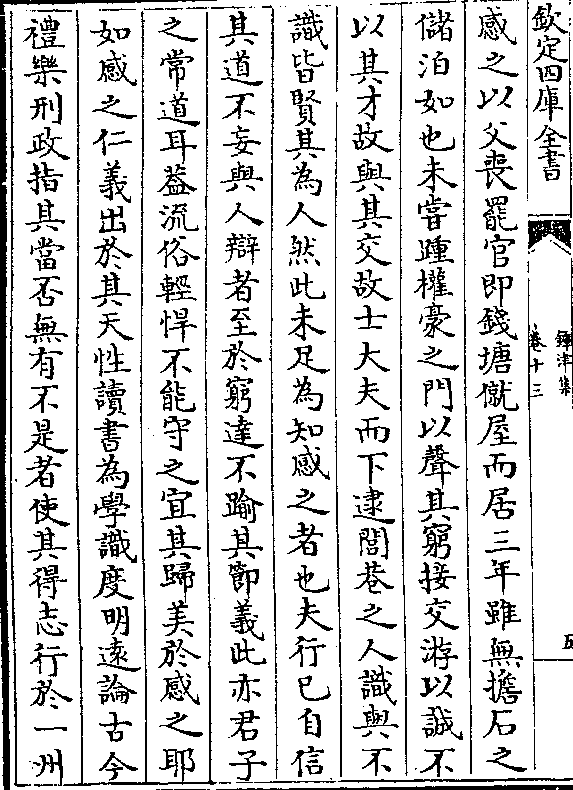 欽定四庫全書
鐔津集
卷十三
五
感之以父喪罷官即錢塘僦屋而居三年雖無擔石之
儲泊如也未嘗踵權豪之門以聲其窮接交游以誠不
以其才故與其交故士大夫而下逮閭巷之人識與不
識皆賢其為人然此未足為知感之者也夫行已自信
其道不妄與人辯者至於窮達不踰其節義此亦君子
之常道耳葢流俗輕悍不能守之宜其歸美於感之耶
如感之仁義出於其天性讀書為學識度明遠論古今
禮樂刑政指其當否無有不是者使其得志行於一州